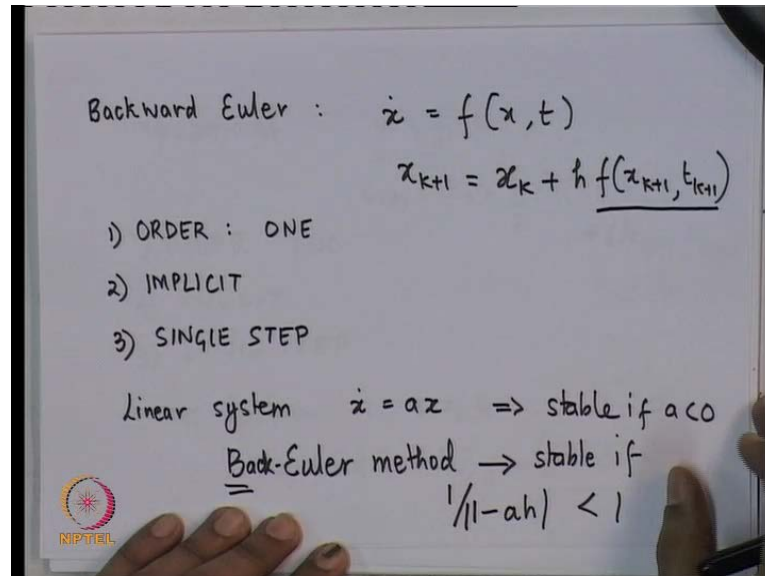 Backward Euler : ẋ = f(x,t)
x_{k+1} = x_k + h f(x_{k+1}, t_{k+1})
1) ORDER : ONE
2) IMPLICIT
3) SINGLE STEP
Linear system ẋ = ax => stable if a<0
Back-Euler method → stable if
1/|1-ah| < 1
NPTEL